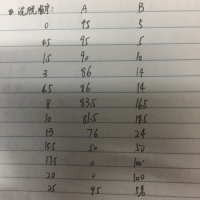 洗脱程序: A B
0 95 5
0.5 95 5
1.5 90 10
3 86 14
6.5 86 14
8 83.5 16.5
10 81.5 18.5
13 76 24
15.5 50 50
17.5 0 100
20 0 100
25 95 5%